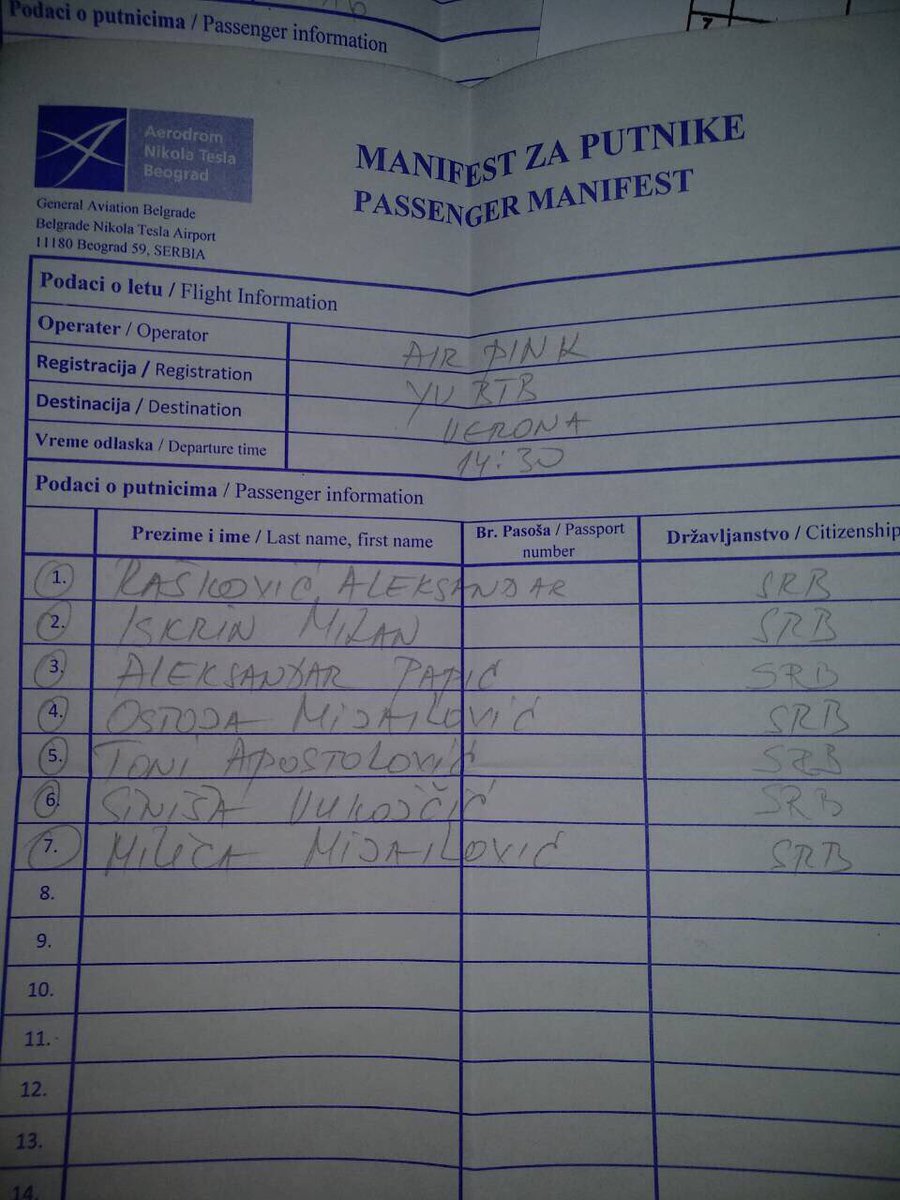 Podaci o putnicima / Passenger information
Aerodrom
Nikola Tesla
Beograd
General Aviation Belgrade
Belgrade Nikola Tesla Airport
11180 Beograd 59, SERBIA
MANIFEST ZA PUTNIKE
PASSENGER MANIFEST
Podaci o letu / Flight Information
Operater / Operator AIR PINK
Registracija / Registration YU BTB
Destinacija / Destination VERONA
Vreme odlaska / Departure time 14:30
Podaci o putnicima / Passenger information
Prezime i ime / Last name, first name Br. Pasoša / Passport number Državljanstvo / Citizenship
1. RAŠKOVIĆ, ALEKSANDAR SRB
2. ISKRIN MILAN SRB
3. ALEKSANDAR PAPIĆ SRB
4. OSTOJA MIJAILOVIĆ SRB
5. TONI APOSTOLOVIĆ SRB
6. SINIŠA VUKOJČIĆ SRB
7. MILICA MIJAILOVIĆ SRB
8.
9.
10.
11.
12.
13.
14.